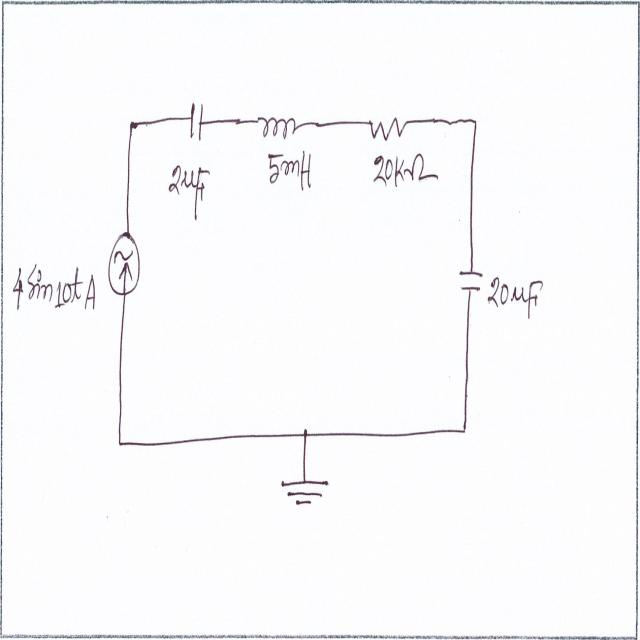 2μF
5mH
20KΩ
4 Sin 10t A
20μF